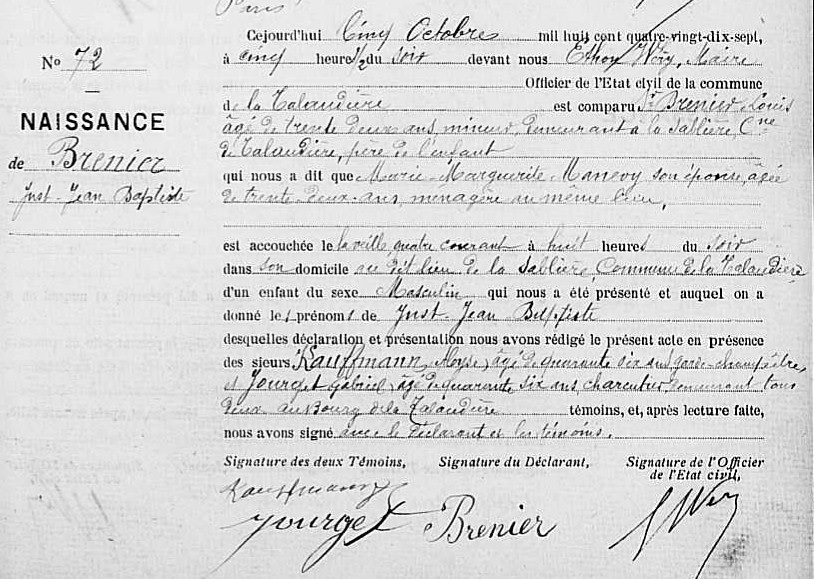 Paris
Cejourd'hui Cinq Octobre mil huit cent quatre-vingt-dix-sept,
N° 72
à cinq heure ½ du soir devant nous Wéry, Maire
Officier de l'Etat civil de la commune
de la Talaudière est comparu Sr Brenier Louis
NAISSANCE
âgé de trente deux ans, mineur, demeurant à la Sablière, Cne
de Talaudière, père de l'enfant
de Brenier
qui nous a dit que Marie-Marguerite Manevy son épouse, âgée
Just-Jean Baptiste
de trente-deux-ans, ménagère au même lieu,
est accouchée le la veille, quatre courant à huit heures du soir
dans son domicile au dit lieu de la Sablière, Commune de la Talaudière
d'un enfant du sexe Masculin qui nous a été présenté et auquel on a
donné les prénoms de Just-Jean Baptiste
desquelles déclaration et présentation nous avons rédigé le présent acte en présence
des sieurs Kauffmann, Moyse, âgé de quarante six ans, garde-champêtre,
et Jourget Gabriel, âgé de quarante six ans, charcutier, demeurant tous
deux au Bourg de la Talaudière témoins, et, après lecture faite,
nous avons signé avec le déclarant et les témoins.
Signature des deux Témoins, Signature du Déclarant, Signature de l'Officier
de l'Etat civil,
Kauffmann
Jourget Brenier Wéry